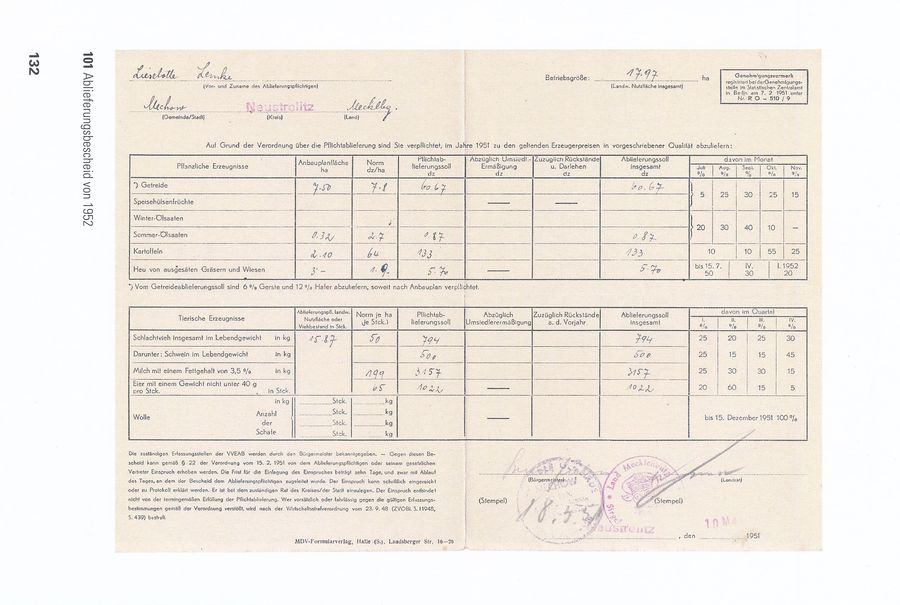 132
101 Ablieferungsbescheid von 1952
Lieselotte Lemke
(Vor- und Zuname des Ablieferungspflichtigen)
Betriebsgröße: 17.97 ha
(Landw. Nutzfläche insgesamt)
Genehmigungsvermerk
registriert bei der Genehmigungs-
stelle im Statistischen Zentralamt
in Berlin am 7. 2. 1951 unter
Nr. R O – 510 / 9
Mechow Neustrelitz Mecklbg.
(Gemeinde/Stadt) (Kreis) (Land)
Auf Grund der Verordnung über die Pflichtablieferung sind Sie verpflichtet, im Jahre 1951 zu den geltenden Erzeugerpreisen in vorgeschriebener Qualität abzuliefern:
Pflanzliche Erzeugnisse
Anbauplanfläche ha
Norm dz/ha
Pflichtab-lieferungssoll dz
Abzüglich Umsiedl.-Ermäßigung dz
Zuzüglich Rückstände u. Darlehen dz
Ablieferungssoll insgesamt dz
davon im Monat
Juli % Aug. % Sept. % Okt. % Nov. %
*) Getreide 7.50 7.8 60.67 60.67
Speisehülsenfrüchte — — 5 25 30 25 15
Winter-Ölsaaten
Sommer-Ölsaaten 0.32 2.7 0.87 0.87 20 30 40 10 –
Kartoffeln 2.10 64 133 133 10 10 55 25
Heu von ausgesäten Gräsern und Wiesen 3.- 1.9 5.70 — 5.70 bis 15. 7. 50 IV. 30 I. 1952 20
*) Vom Getreideablieferungssoll sind 6 % Gerste und 12 % Hafer abzuliefern, soweit nach Anbauplan verpflichtet.
Tierische Erzeugnisse
Ablieferungspfl. landw. Nutzfläche oder Viehbestand in Stck.
Norm je ha (je Stck.)
Pflichtab-lieferungssoll
Abzüglich Umsiedlerermäßigung
Zuzüglich Rückstände a. d. Vorjahr
Ablieferungssoll insgesamt
davon im Quartal
I. % II. % III. % IV. %
Schlachtvieh insgesamt im Lebendgewicht in kg 15.87 50 794 794 25 20 25 30
Darunter: Schwein im Lebendgewicht in kg 500 500 25 15 15 45
Milch mit einem Fettgehalt von 3,5 % in kg 199 3157 3157 25 30 30 15
Eier mit einem Gewicht nicht unter 40 g
pro Stck. in Stck. 65 1022 — 1022 20 60 15 5
Wolle in kg Stck. kg
Anzahl Stck. kg
der Stck. kg
Schafe Stck. kg
— bis 15. Dezember 1951 100 %
Die zuständigen Erfassungsstellen der VVEAB werden durch den Bürgermeister bekanntgegeben. — Gegen diesen Be-
scheid kann gemäß § 22 der Verordnung vom 15. 2. 1951 von dem Ablieferungspflichtigen oder seinem gesetzlichen
Vertreter Einspruch erhoben werden. Die Frist für die Einlegung des Einspruches beträgt zehn Tage, und zwar mit Ablauf
des Tages, an dem der Bescheid dem Ablieferungspflichtigen zugeleitet wurde. Der Einspruch kann schriftlich eingereicht
oder zu Protokoll erklärt werden. Er ist bei dem zuständigen Rat des Kreises/der Stadt einzulegen. Der Einspruch entbindet
nicht von der termingemäßen Erfüllung der Pflichtablieferung. Wer vorsätzlich oder fahrlässig gegen die gültigen Erfassungs-
bestimmungen gemäß der Verordnung verstößt, wird nach der Wirtschaftsstrafverordnung vom 23. 9. 48 (ZVOBl. S. 1/1948,
S. 439) bestraft.
(Bürgermeister) (Landrat)
(Stempel) (Stempel)
Land Mecklenburg
18.5.5
Neustrelitz
, den 10 Mai 1951
MDV-Formularverlag, Halle (S.), Landsberger Str. 16—26